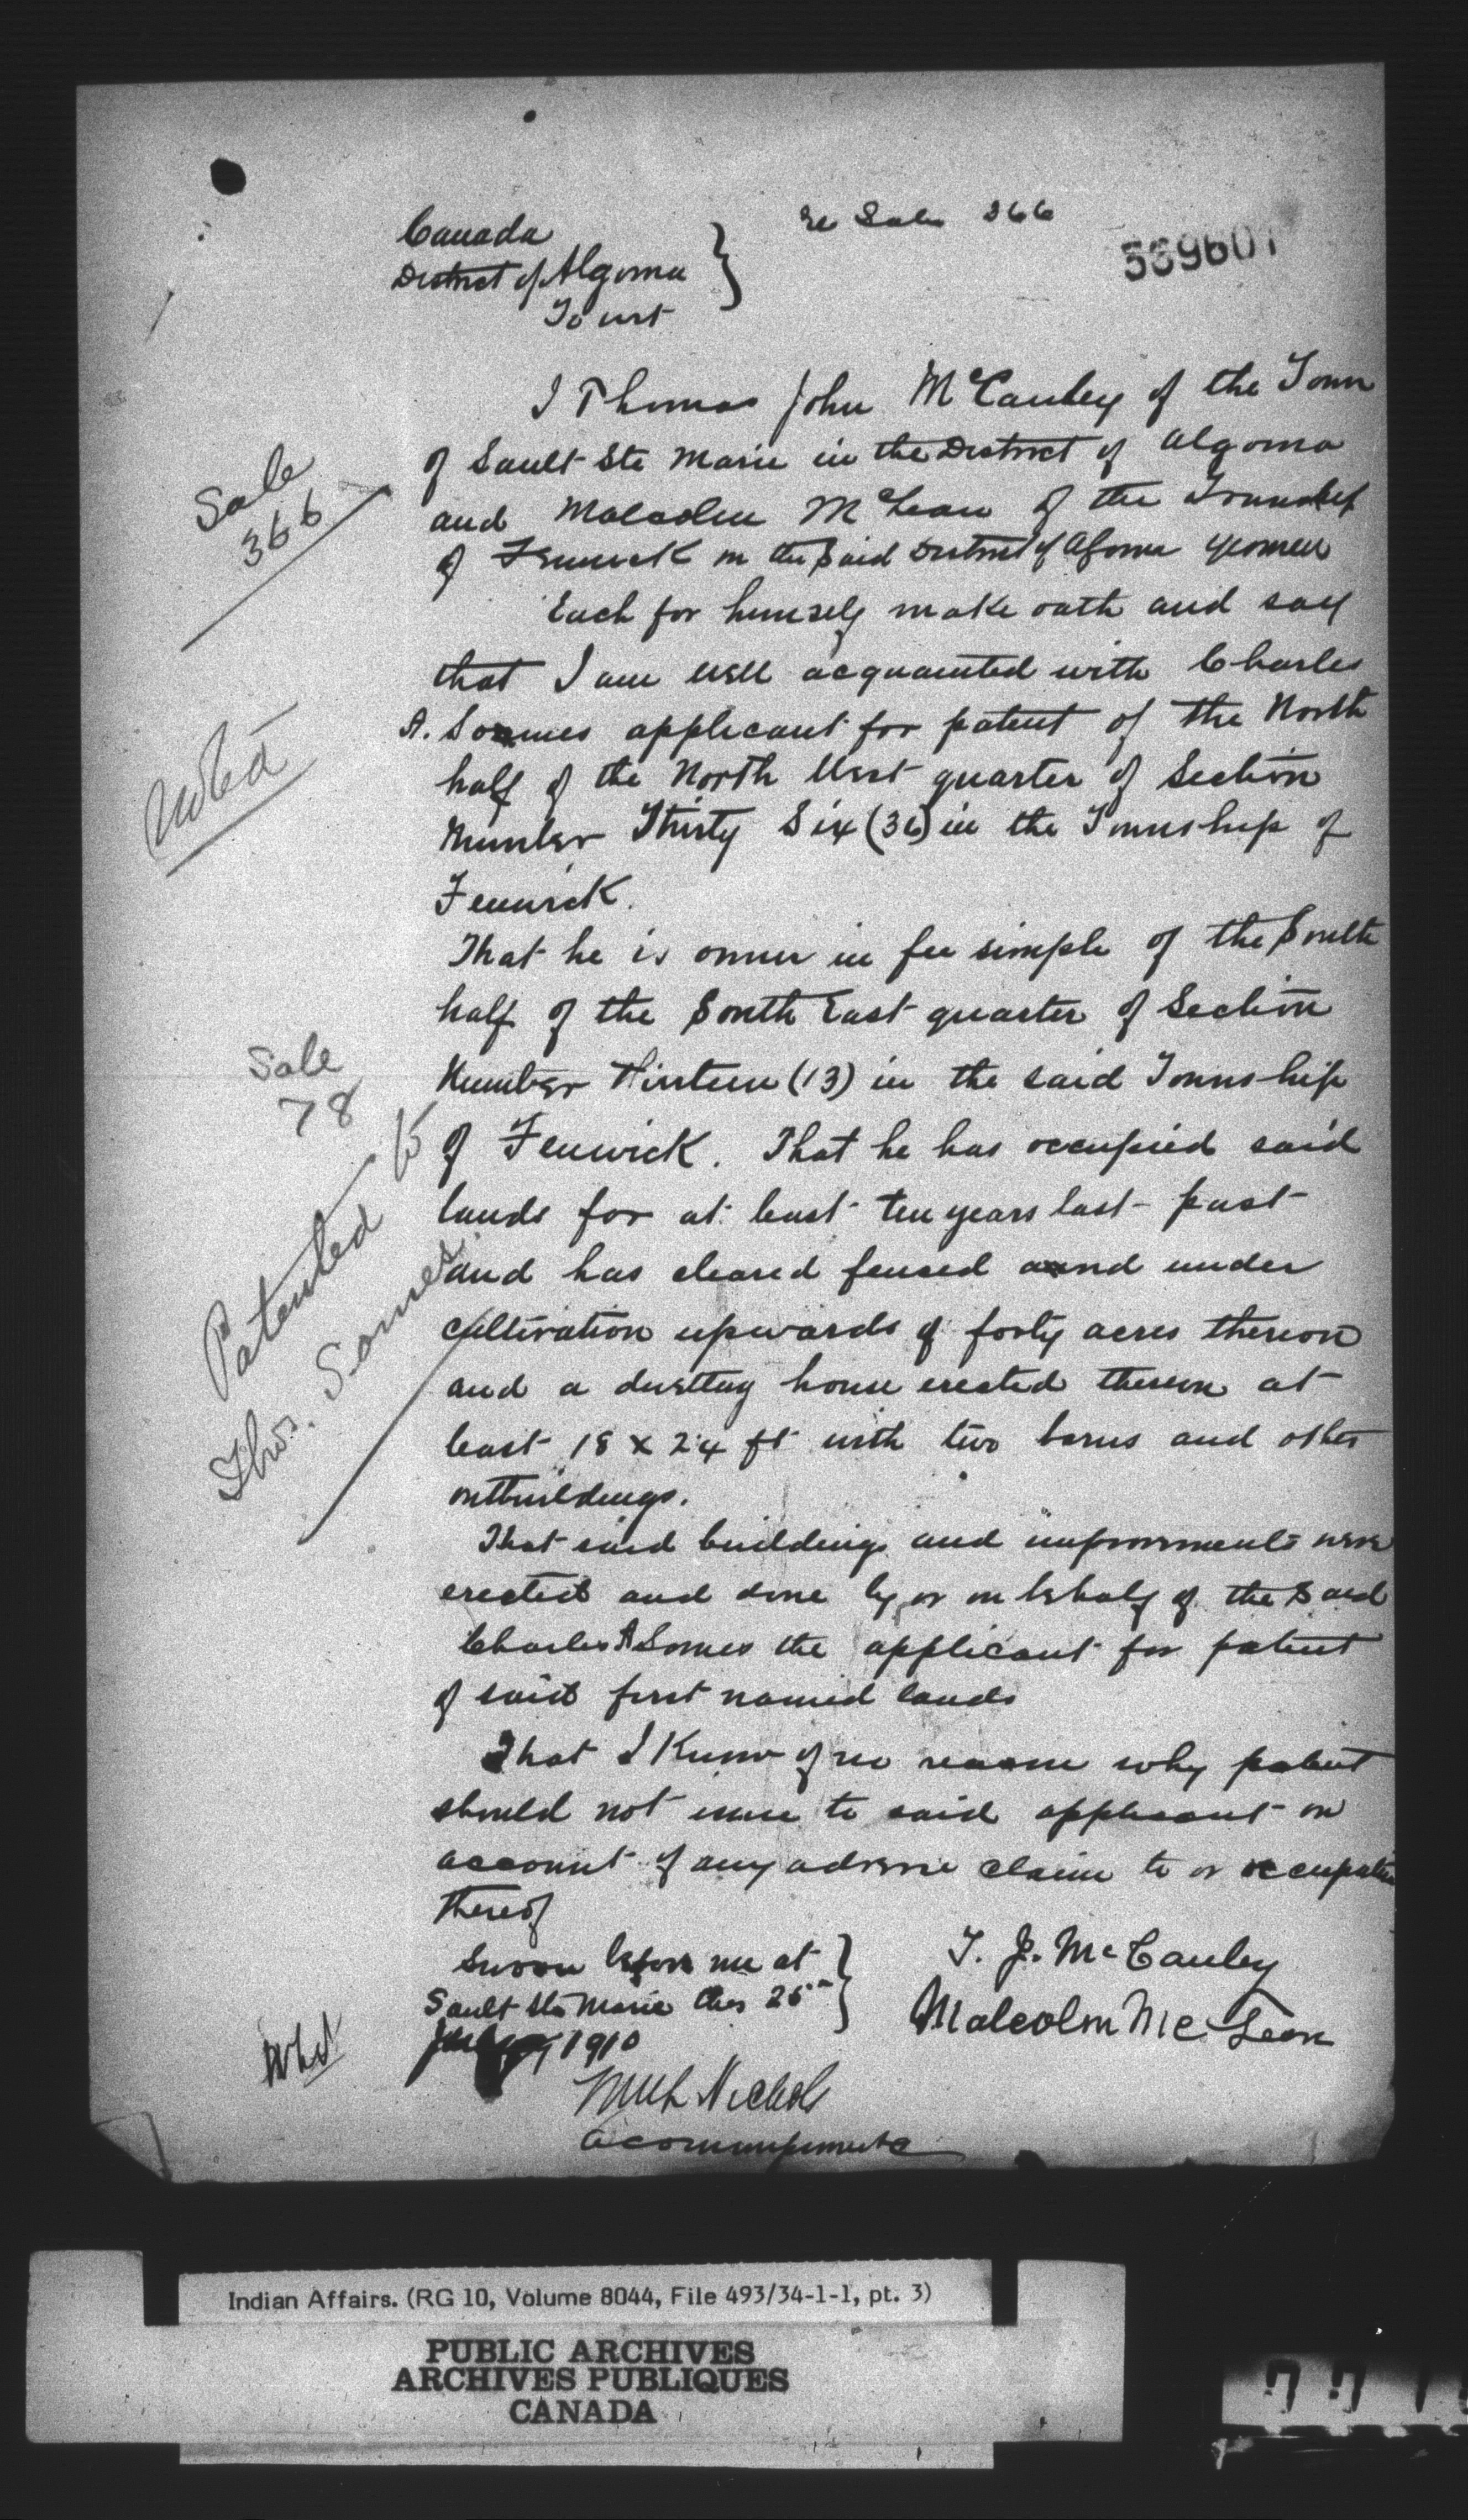 re Sale 366
539601
Canada
District of Algoma
To wit
I Thomas John McCauley of the Town
of Sault Ste Marie in the District of Algoma
and Malcolm McLean of the Township
of Fenwick in the said District of Algoma yeomen
Each for himself make oath and say
that I am well acquainted with Charles
A. Somes applicant for patent of the North
half of the North West quarter of Section
Number Thirty Six (36) in the Township of
Fenwick.
That he is owner in fee simple of the South
half of the South East quarter of Section
Number Thirteen (13) in the said Township
of Fenwick. That he has occupied said
lands for at least ten years last past
and has cleared fensed and under
cultivation upwards of forty acres thereon
and a dwelling house erected thereon at
least 18 x 24 ft with two barns and other
outbuildings.
That said buildings and improvements were
erected and done by or on behalf of the said
Charles A Somes the applicant for patent
of said first named lands
That I Know of no reason why patent
should not issue to said applicant on
account of any adverse claim to or occupation
thereof
Sworn before me at
Sault Ste Marie this 25th
1910
T. J. McCauley
Malcolm McLean
Nichols
Sale
366
Noted
Sale
78
Patented to
Thos. Somes
Indian Affairs. (RG 10, Volume 8044, File 493/34-1-1, pt. 3)
PUBLIC ARCHIVES
ARCHIVES PUBLIQUES
CANADA